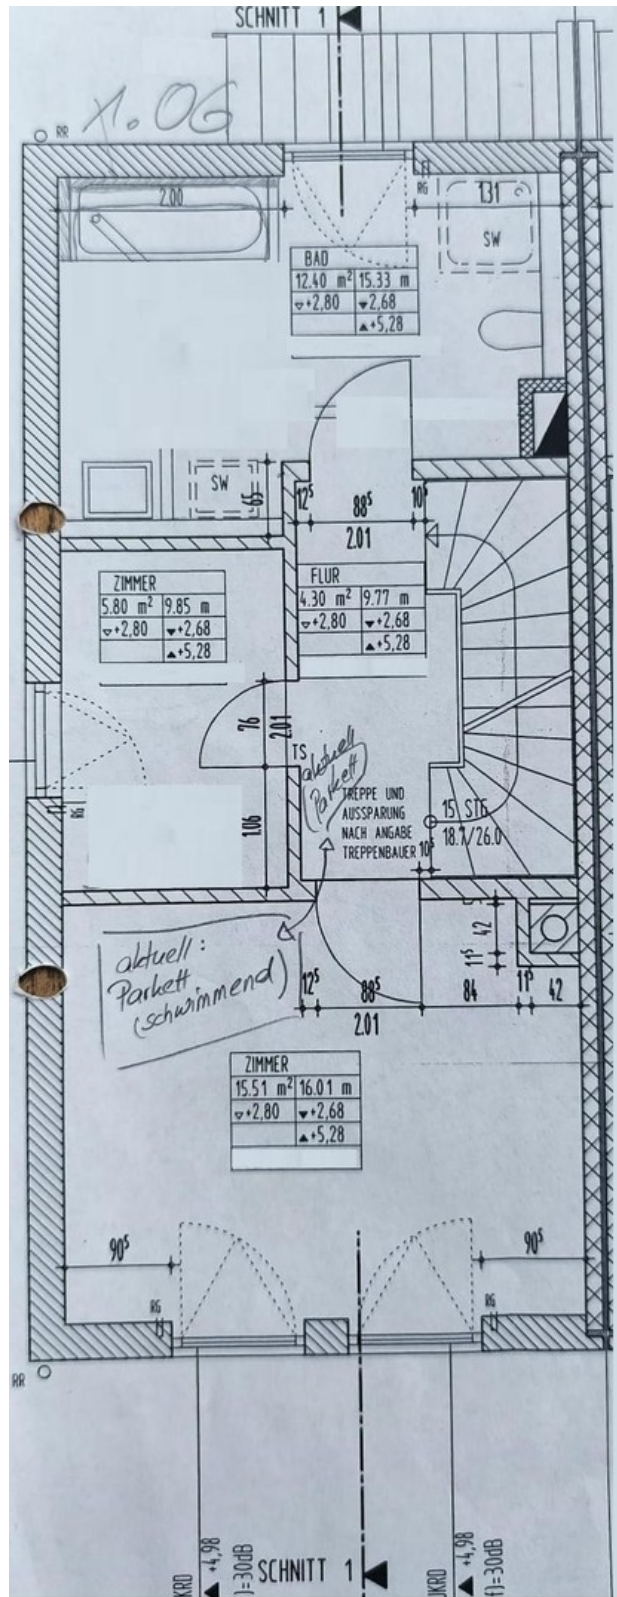 SCHNITT 1
1. OG
RR
2.00
RG
1.31
SW
BAD
12.40 m² 15.33 m
▽+2,80 ▼+2,68
▲+5,28
SW
65
12⁵ 88⁵ 10⁵
2.01
ZIMMER
5.80 m² 9.85 m
▽+2,80 ▼+2,68
▲+5,28
FLUR
4.30 m² 9.77 m
▽+2,80 ▼+2,68
▲+5,28
76
2.01
TS
aktuell
(Parkett)
TREPPE UND
AUSSPARUNG
NACH ANGABE
TREPPENBAUER
10⁵
15 STG
18.7/26.0
RG
1.06
aktuell:
Parkett
(schwimmend)
42
11⁵
12⁵ 88⁵ 84 11⁵ 42
2.01
ZIMMER
15.51 m² 16.01 m
▽+2,80 ▼+2,68
▲+5,28
90⁵
90⁵
RG
RG
RR
UKRD
▲ +4,98
)=30dB
SCHNITT 1
UKRD
▲ +4,98
f)=30dB